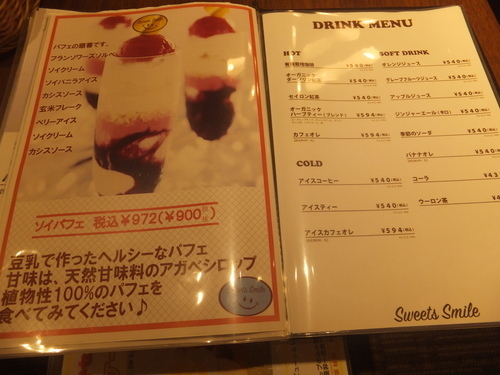 パフェの順番です。
フランソワーズソルベ
ソイクリーム
ソイバニラアイス
カシスソース
玄米フレーク
ベリーアイス
ソイクリーム
カシスソース
ソイパフェ 税込¥972(¥900
豆乳で作ったヘルシーなパフェ
甘味は、天然甘味料のアガベシロップ
植物性100%のパフェを
食べてみてください♪
DRINK MENU
HOT
オーガニック
セイロン紅茶
オーガニック
ハーブティー(ブレンド) ¥594(税込)
カフェオレ ¥594(税込)
COLD
アイスコーヒー ¥540(税込)
アイスティー ¥540(税込)
アイスカフェオレ ¥594(税込)
SOFT DRINK
オレンジジュース ¥540(税込)
グレープフルーツジュース ¥540(税込)
アップルジュース ¥540(税込)
ジンジャーエール(辛口) ¥540(税込)
季節のソーダ ¥540(税込)
バナナオレ ¥540
コーラ ¥43
ウーロン茶 ¥4
Sweets Smile